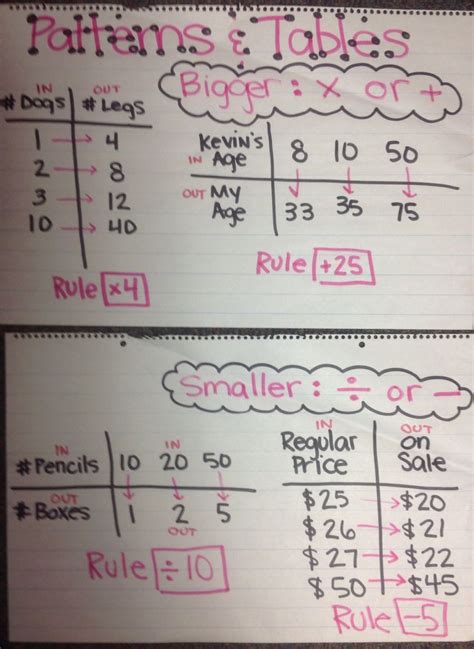 Patterns & Tables
Bigger: x or +
IN OUT
# Dogs # Legs
1 → 4
2 → 8
3 → 12
10 → 40
Rule x4
Kevin's
IN Age 8 10 50
OUT My
Age 33 35 75
Rule +25
Smaller: ÷ or -
IN IN
# Pencils 10 20 50
OUT
# Boxes 1 2 5
OUT
Rule ÷ 10
IN OUT
Regular on
Price Sale
$25 → $20
$26 → $21
$27 → $22
$50 → $45
Rule -5